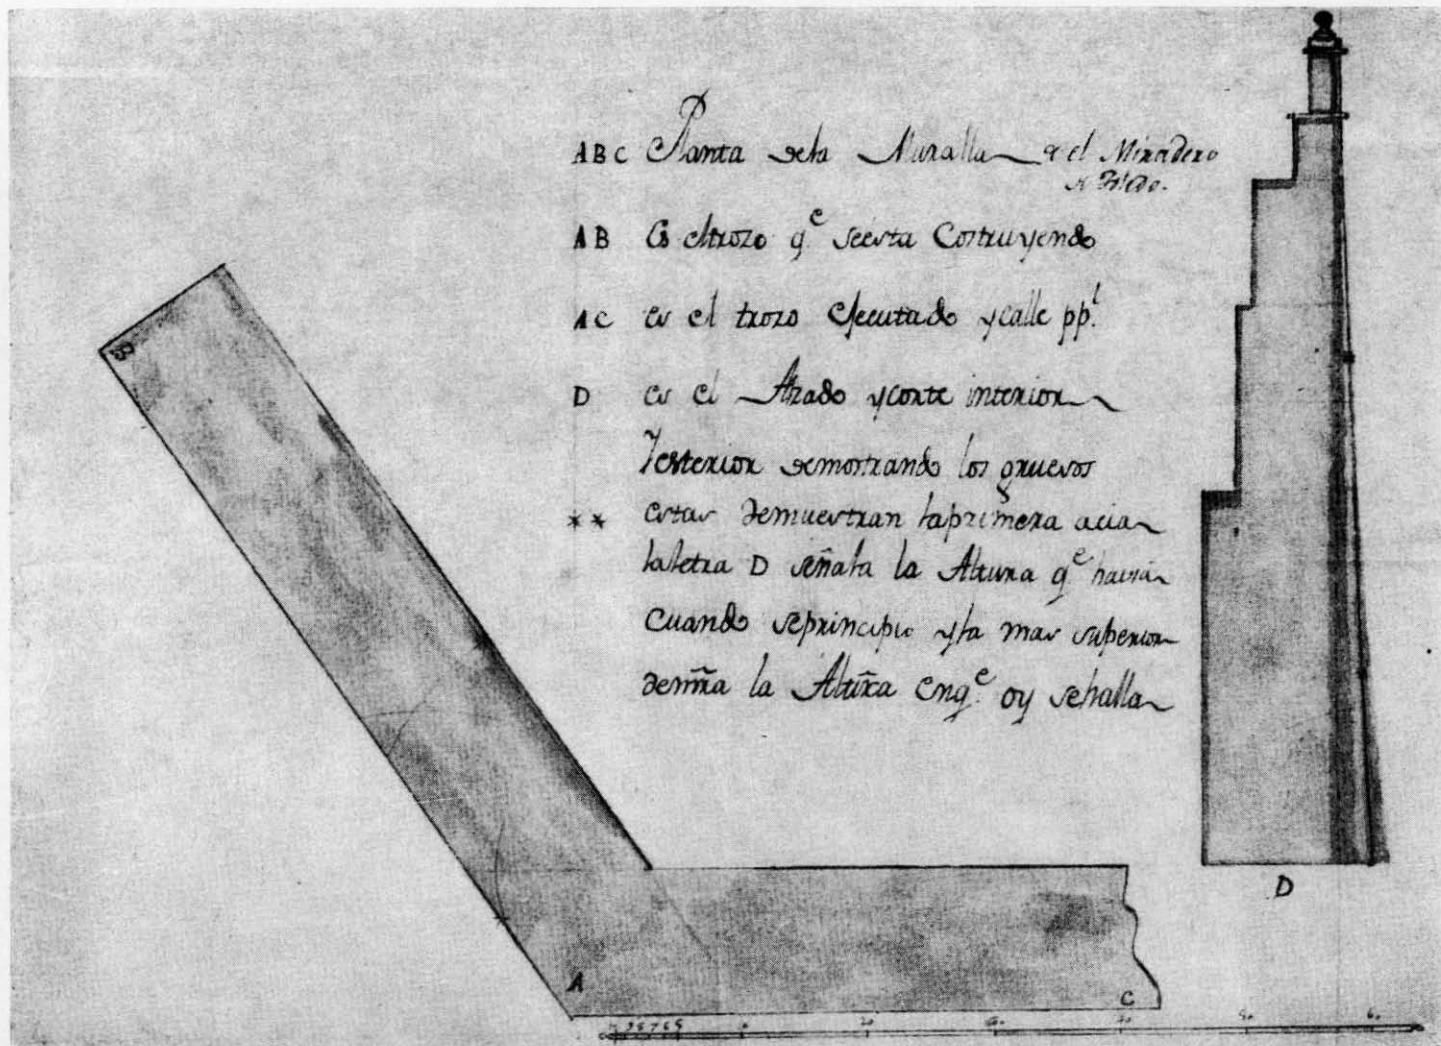 ABC Planta dela Muralla d el Miradero
AB Es eltrozo q.e seesta Costruyendo
AC es el trozo ejecutado ycalle pp.l
D es el Alzado ycorte interior
Yesterior demostrando los gruesos
** estas demuestran laprimera acia
laletra D señala la Altura q.e havia
cuando seprincipio yla mas superior
demr̃a la Altura enq.e oy sehalla
B
A
C
D
9 8 7 6 5 0 20 60